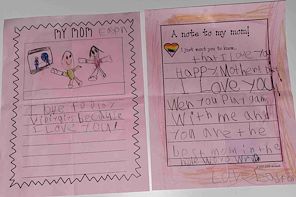 MY MOM
I love to play
because
I Love YOU!
A note to my mom!
I just want you to know...
that I Love You
Happy Mother's
I Love you!
Wen you Play gam
With me and
you are the
best mom in the
hole Wide World
Love